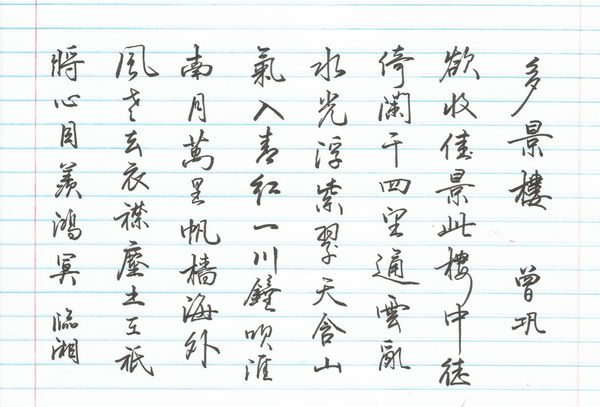 多景樓 曾巩
欲收佳景此樓中徒
倚闌干四望通雲亂
水光浮紫翠天含山
氣入青紅一川鐘唄淮
南月萬里帆檣海外
風老去衣襟塵土在祇
將心目羨鴻冥 臨湘